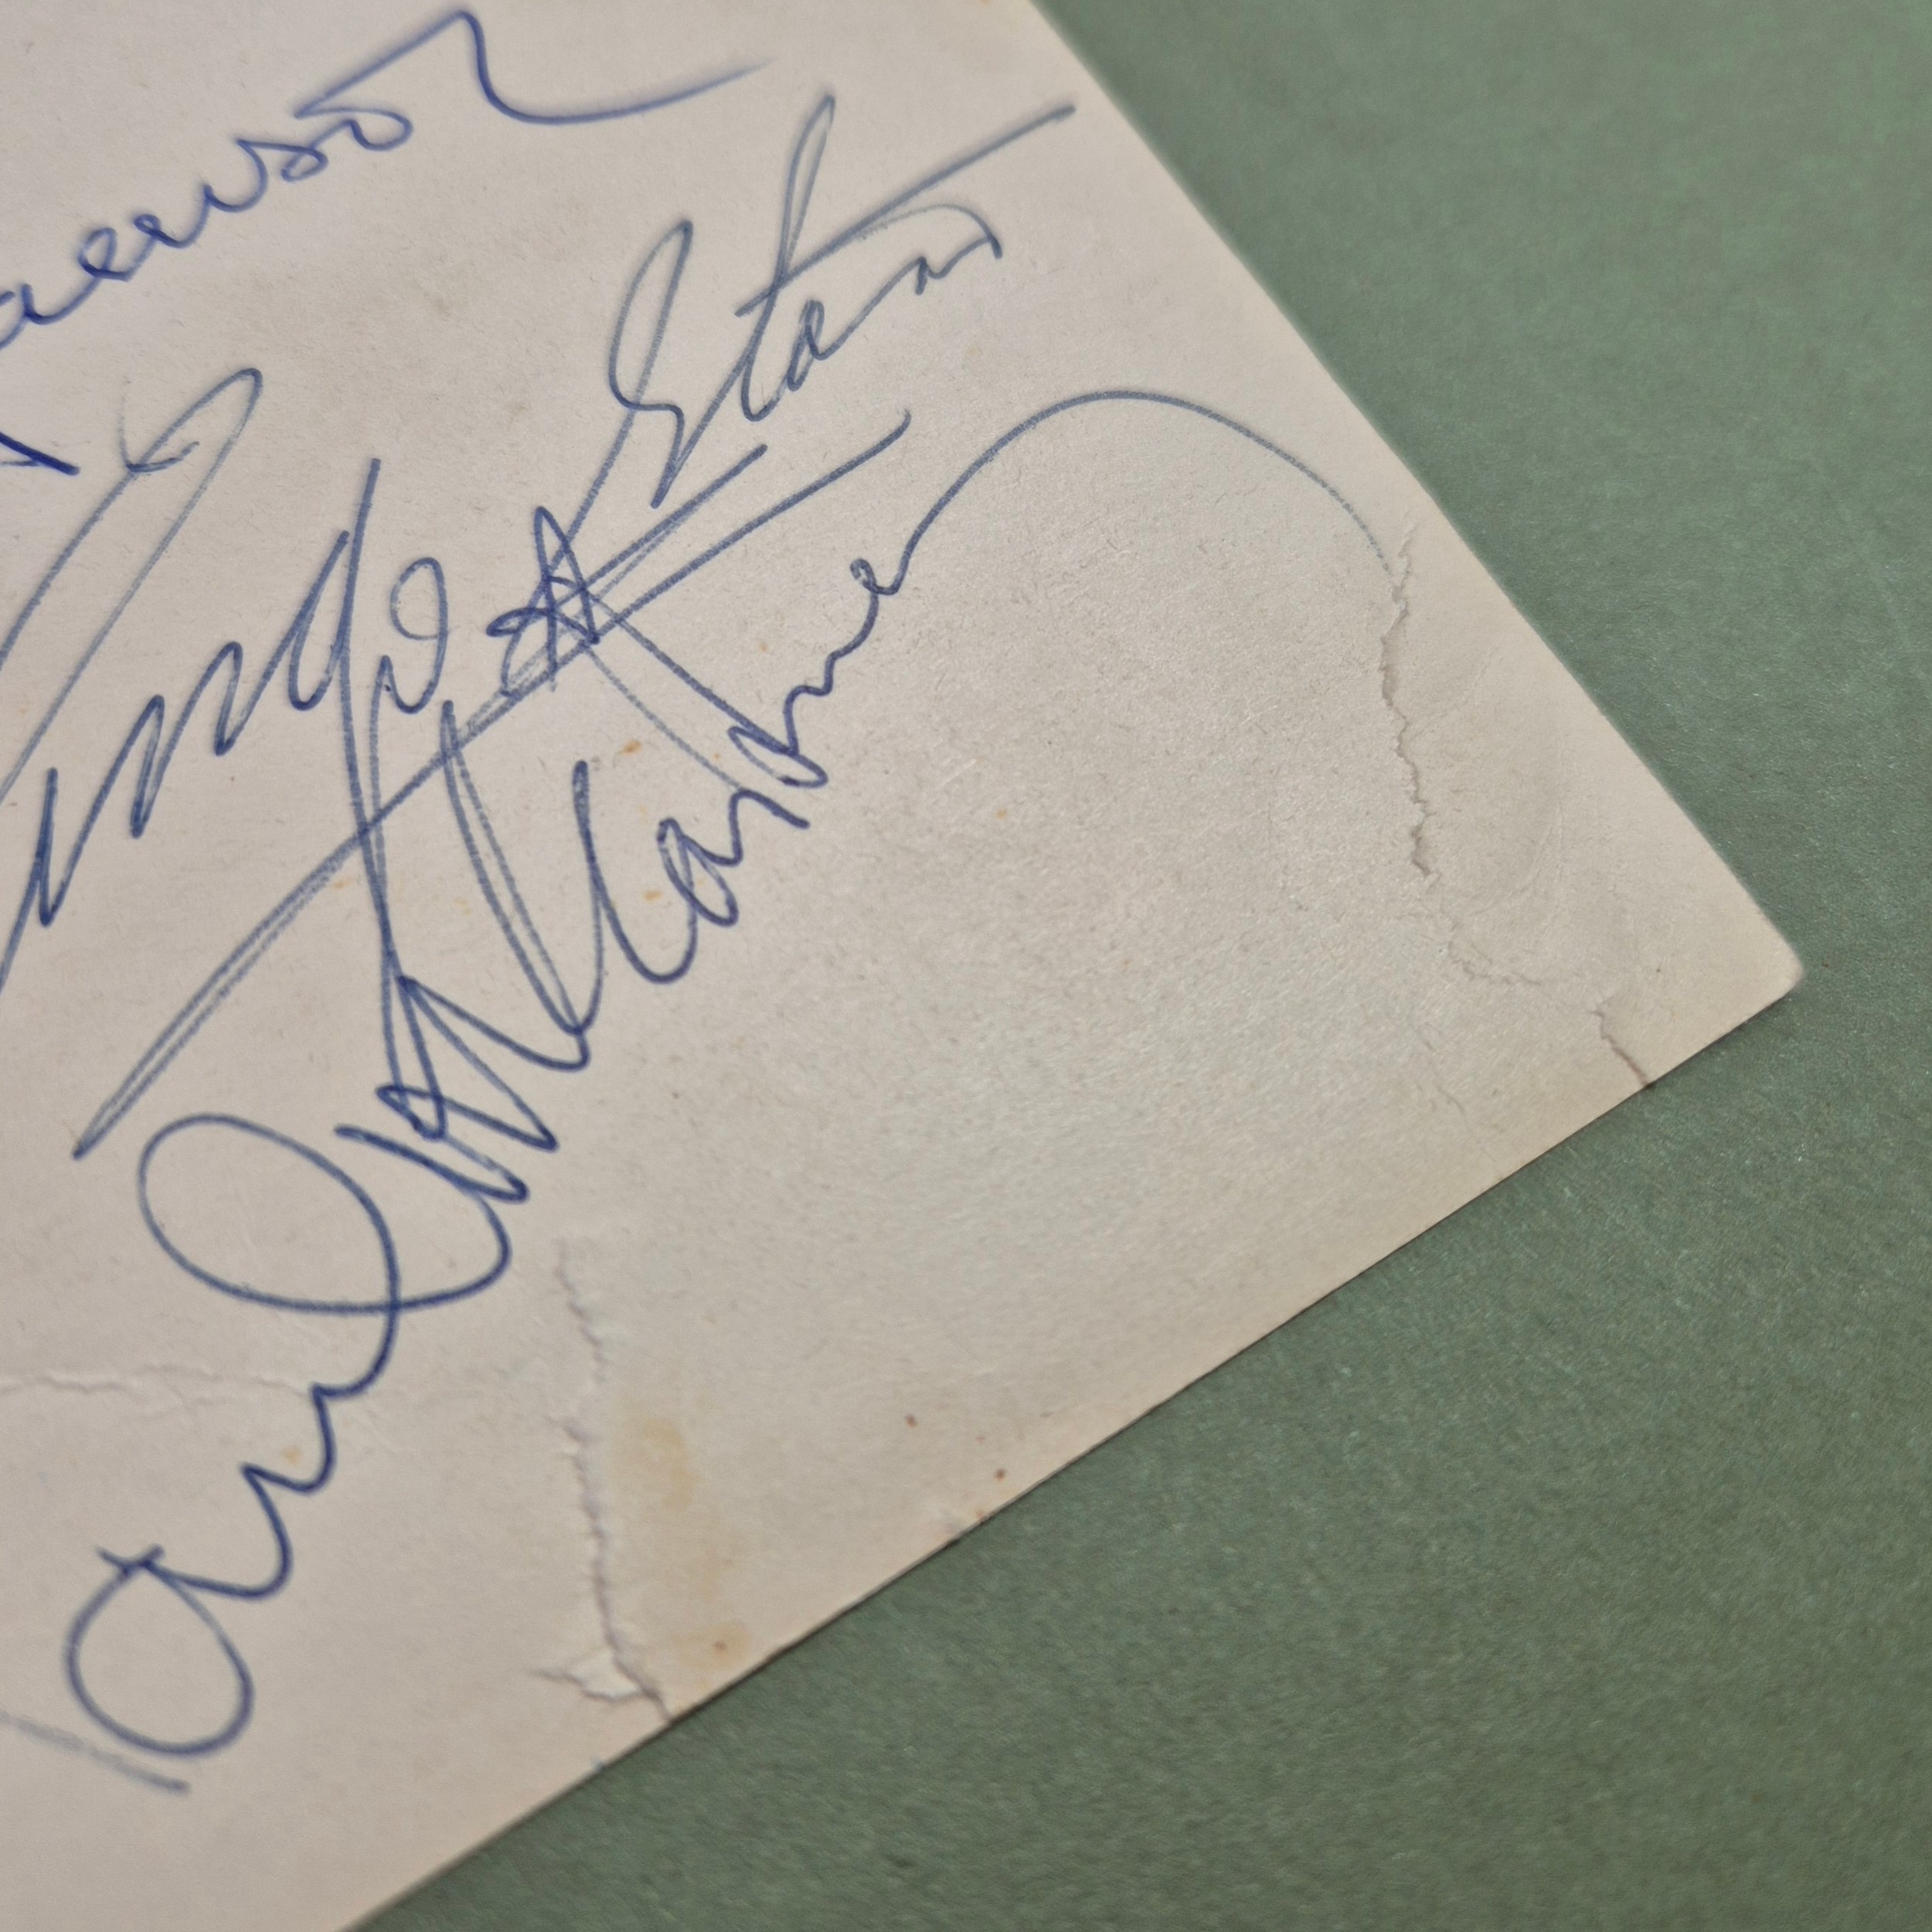 arrison
Ringo Starr
aul McCartney